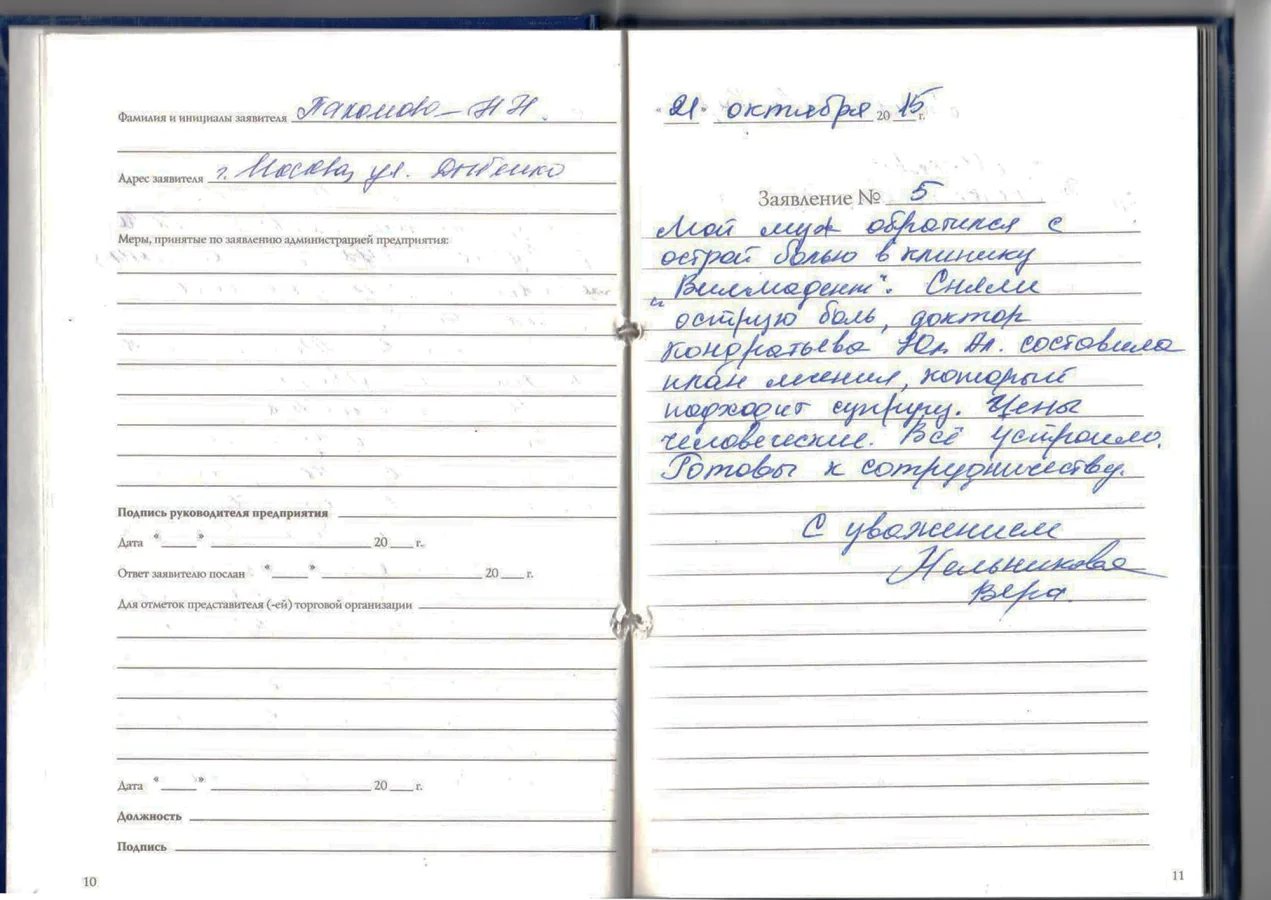 Фамилия и инициалы заявителя Пахомова Н Н.
Адрес заявителя г. Москва, ул. Дыбенко
Меры, принятые по заявлению администрацией предприятия:
Подпись руководителя предприятия
Дата "___" ___ 20___ г.
Ответ заявителю послан "___" ___ 20___ г.
Для отметок представителя (-ей) торговой организации
Дата "___" ___ 20___ г.
Должность
Подпись
10
"21" октября 2015 г.
Заявление № 5
Мой муж обратился с
острой болью в клинику
"Вилмадент". Сняли
острую боль, доктор
Кондратьева Юл. Ал. составила
план лечения, который
подходит супругу. Цены
человеческие. Всё устроило.
Готовы к сотрудничеству.
С уважением
Вера.
11